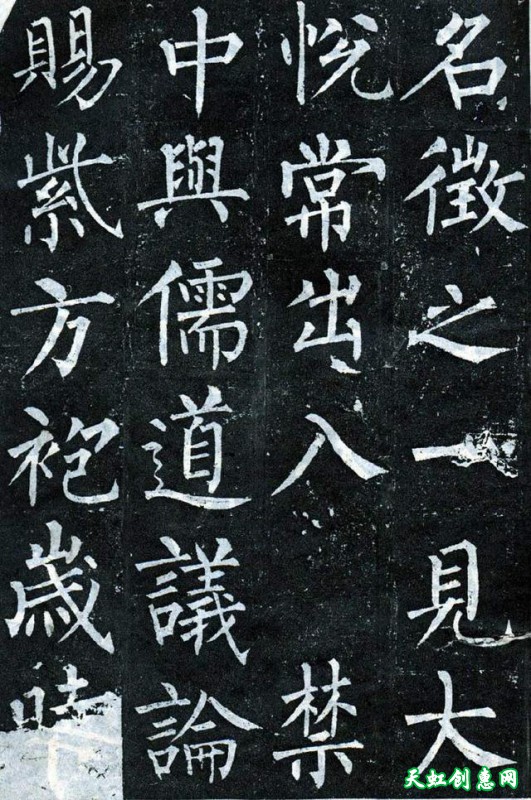 名徵之一見大
悅常出入 禁
中與儒道議論
賜紫方袍歲時
天虹创惠网